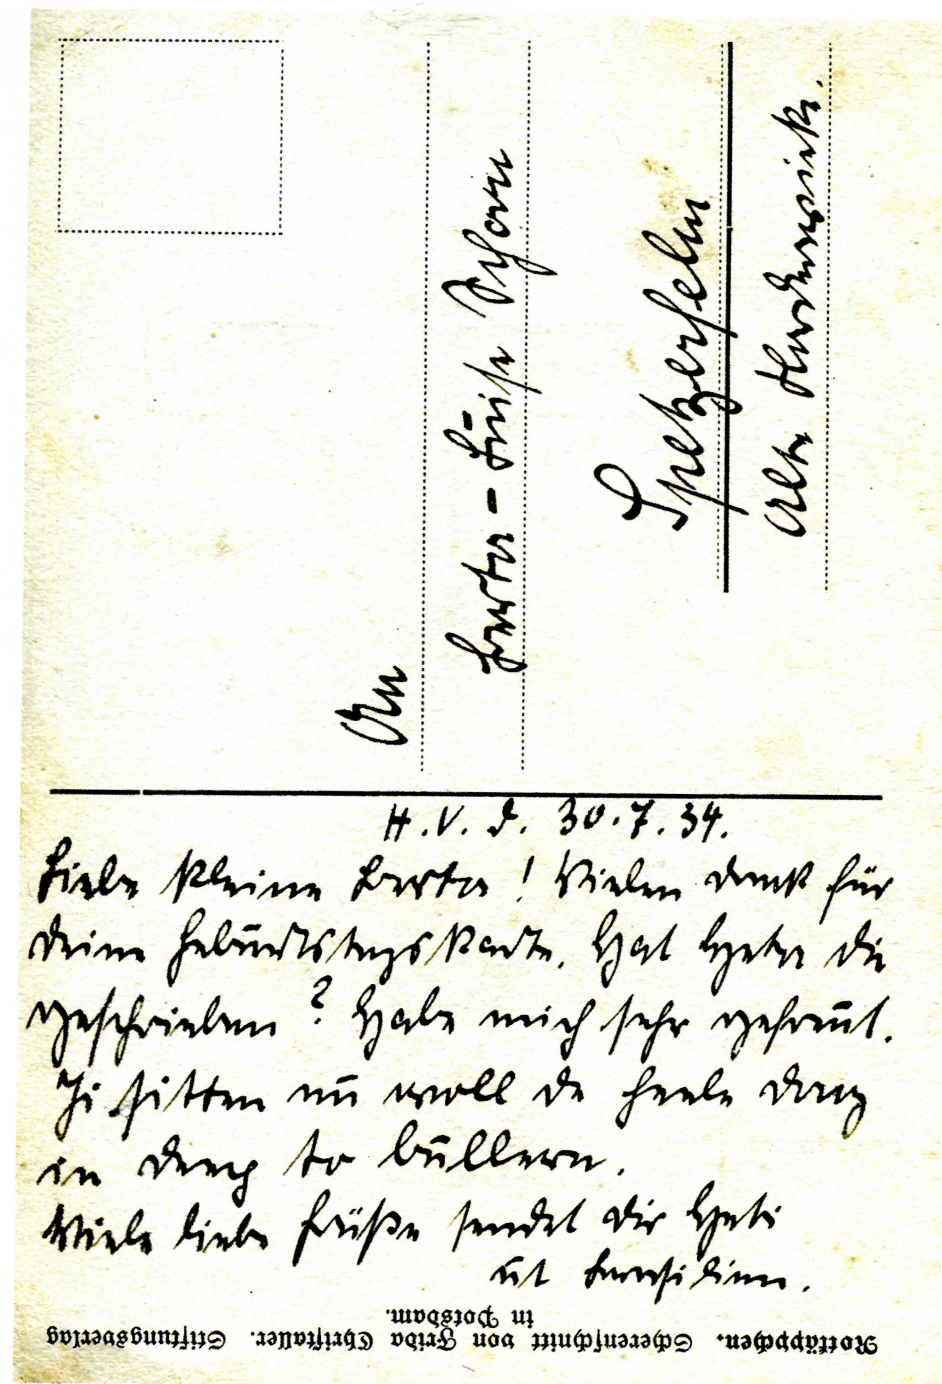 An
Berta-Luise
Spetzerfehn
Alte Norderwieke.
H.V.d. 30.7.34.
Liebe kleine Berta! Vielen Dank für
deine Geburtstagskarte. Hat die
geschrieben? Habe mich sehr gefreut.
Ji sitten nu woll de heele Dag
in Deep to büllern.
Viele liebe Grüße sendet dir
ut Brasilien.
Rotkäppchen. Scherenschnitt von Frida Christaller. Stiftungsverlag
in Potsdam.